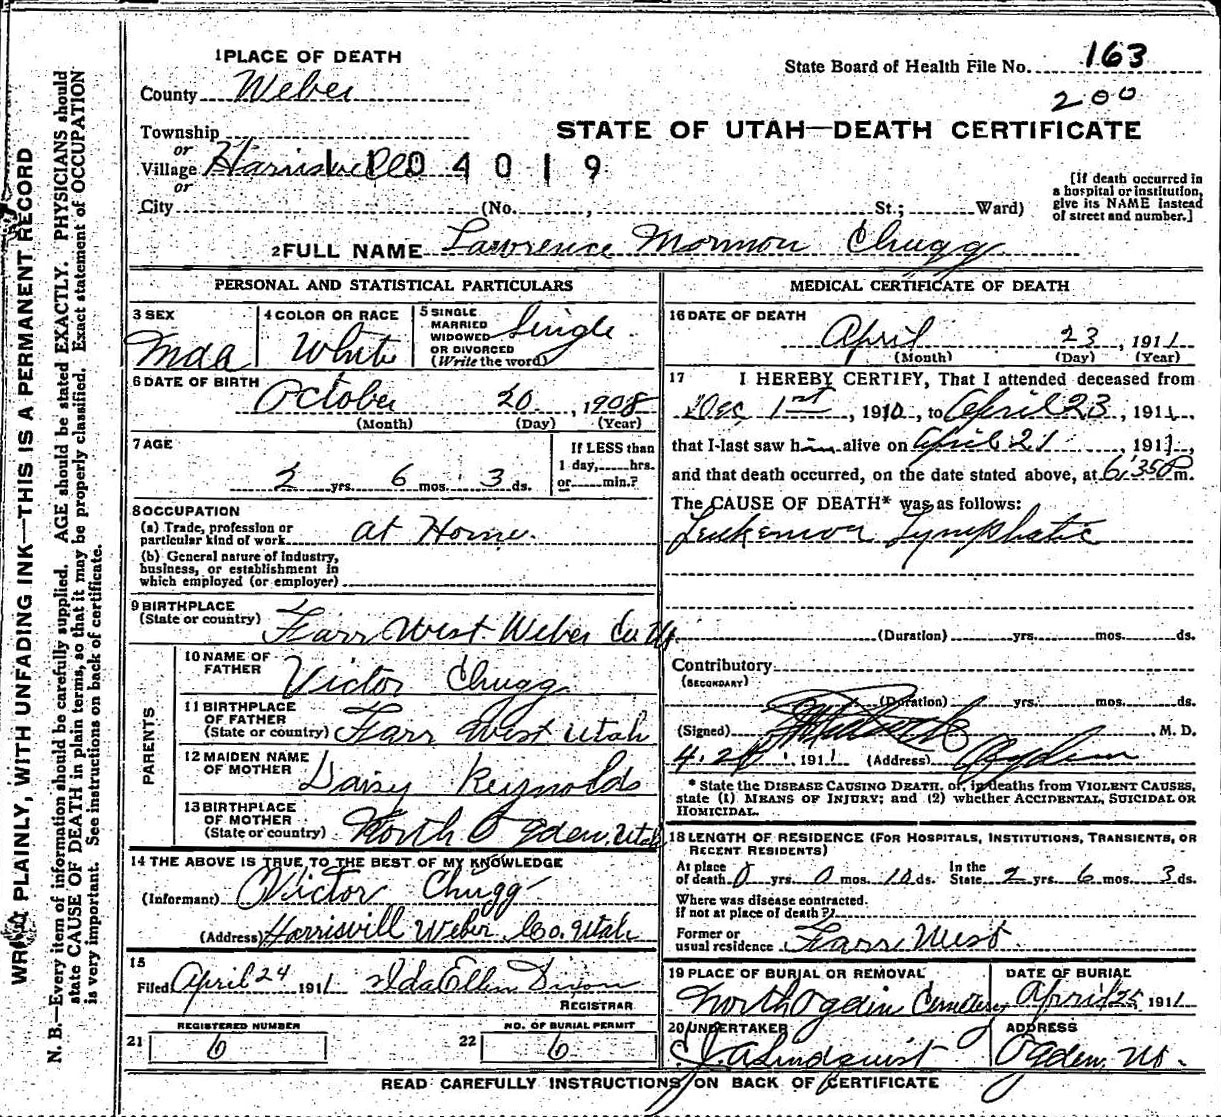 WRITE PLAINLY, WITH UNFADING INK—THIS IS A PERMANENT RECORD
N. B.—Every item of information should be carefully supplied. AGE should be stated EXACTLY. PHYSICIANS should
state CAUSE OF DEATH in plain terms, so that it may be properly classified. Exact statement of OCCUPATION
is very important. See instructions on back of certificate.
1 PLACE OF DEATH
State Board of Health File No. 163
County Weber
200
Township
STATE OF UTAH—DEATH CERTIFICATE
or
Village Harrisville 1104019
or
City (No. , St.; Ward)
[If death occurred in
a hospital or institution,
give its NAME instead
of street and number.]
2 FULL NAME Lawrence Mormon Chugg
PERSONAL AND STATISTICAL PARTICULARS
3 SEX
4 COLOR OR RACE White
5 SINGLE
MARRIED
WIDOWED
OR DIVORCED
(Write the word)
Single
6 DATE OF BIRTH
October 20, 1908
(Month) (Day) (Year)
7 AGE
2 yrs. 6 mos. 3 ds.
If LESS than
1 day, hrs.
or min.?
8 OCCUPATION
(a) Trade, profession or
particular kind of work at Home.
(b) General nature of industry,
business, or establishment in
which employed (or employer)
9 BIRTHPLACE
(State or country) Farr West Weber Co Ut.
PARENTS
10 NAME OF
FATHER Victor Chugg
11 BIRTHPLACE
OF FATHER
(State or country) Farr West Utah
12 MAIDEN NAME
OF MOTHER Daisy Reynolds
13 BIRTHPLACE
OF MOTHER
(State or country) North Ogden, Utah
14 THE ABOVE IS TRUE TO THE BEST OF MY KNOWLEDGE
(Informant) Victor Chugg
(Address) Harrisvill Weber Co. Utah
15
Filed April 24 1911 Ida Ellen Dixon
REGISTRAR
REGISTERED NUMBER
21 6
NO. OF BURIAL PERMIT
22 6
MEDICAL CERTIFICATE OF DEATH
16 DATE OF DEATH
April 23, 1911
(Month) (Day) (Year)
17 I HEREBY CERTIFY, That I attended deceased from
Dec 1st, 1910, to April 23, 1911,
that I last saw him alive on April 21, 1911,
and that death occurred, on the date stated above, at 6:35 P m.
The CAUSE OF DEATH* was as follows:
Lymphatic
(Duration) yrs. mos. ds.
Contributory
(SECONDARY)
(Duration) yrs. mos. ds.
(Signed) , M. D.
1911 (Address) Ogden
* State the DISEASE CAUSING DEATH, or, in deaths from VIOLENT CAUSES,
state (1) MEANS OF INJURY; and (2) whether ACCIDENTAL, SUICIDAL OR
HOMICIDAL.
18 LENGTH OF RESIDENCE (FOR HOSPITALS, INSTITUTIONS, TRANSIENTS, OR
RECENT RESIDENTS)
At place
of death 0 yrs. 0 mos. 10 ds. In the
State 2 yrs. 6 mos. 3 ds.
Where was disease contracted,
if not at place of death?
Former or
usual residence Farr West
19 PLACE OF BURIAL OR REMOVAL
North Ogden Cemetery
DATE OF BURIAL
April 25 1911
20 UNDERTAKER
C. J. A. Lindquist
ADDRESS
Ogden, Ut.
READ CAREFULLY INSTRUCTIONS ON BACK OF CERTIFICATE